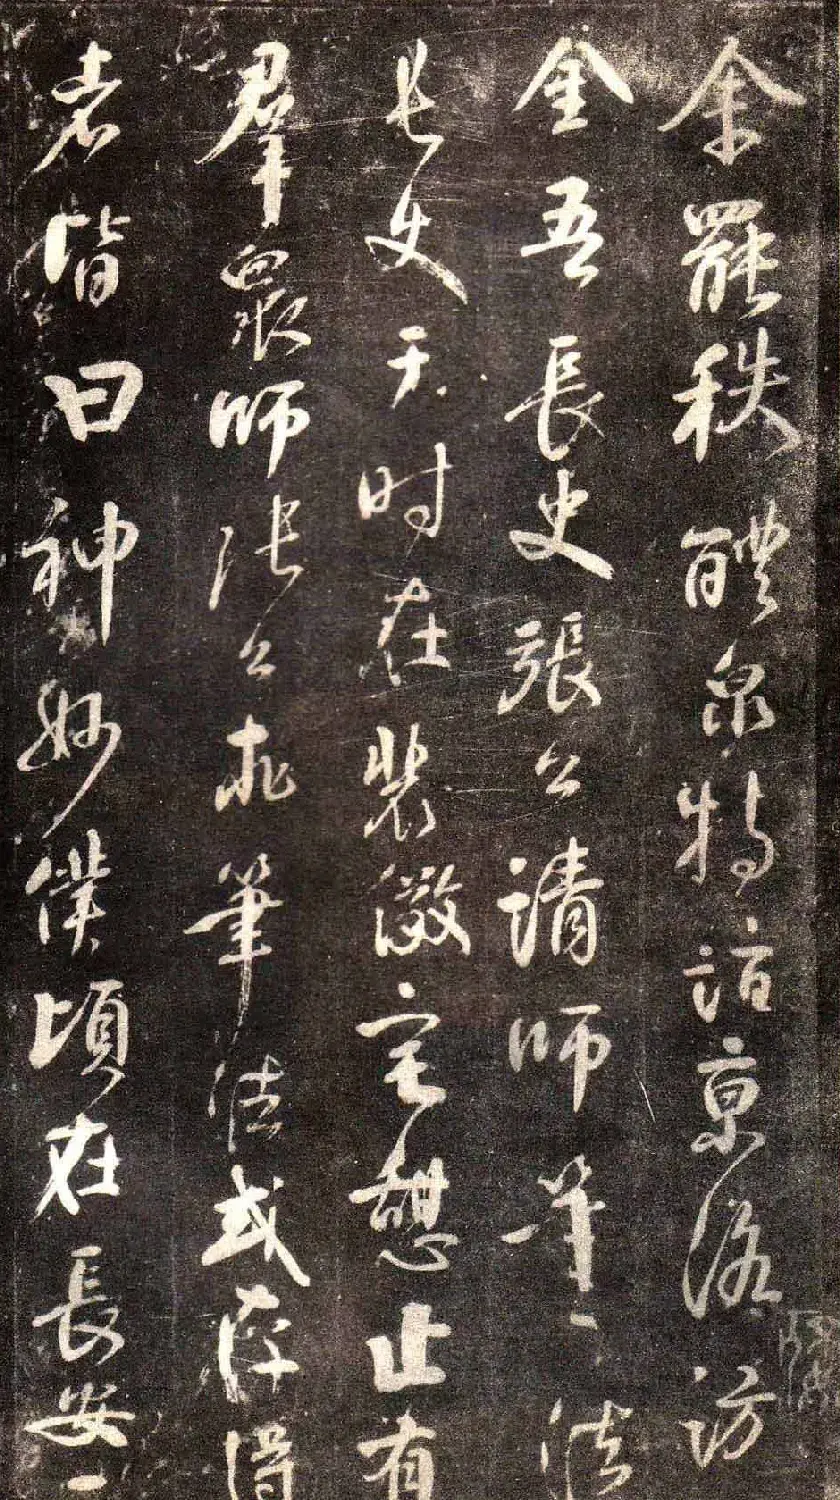 余罷秩醴泉特詣京洛訪
金吾長史張公請師筆法
長史于時在裴儆宅憩止有
群衆師張公求筆法或存得
者皆曰神妙僕頃在長安二